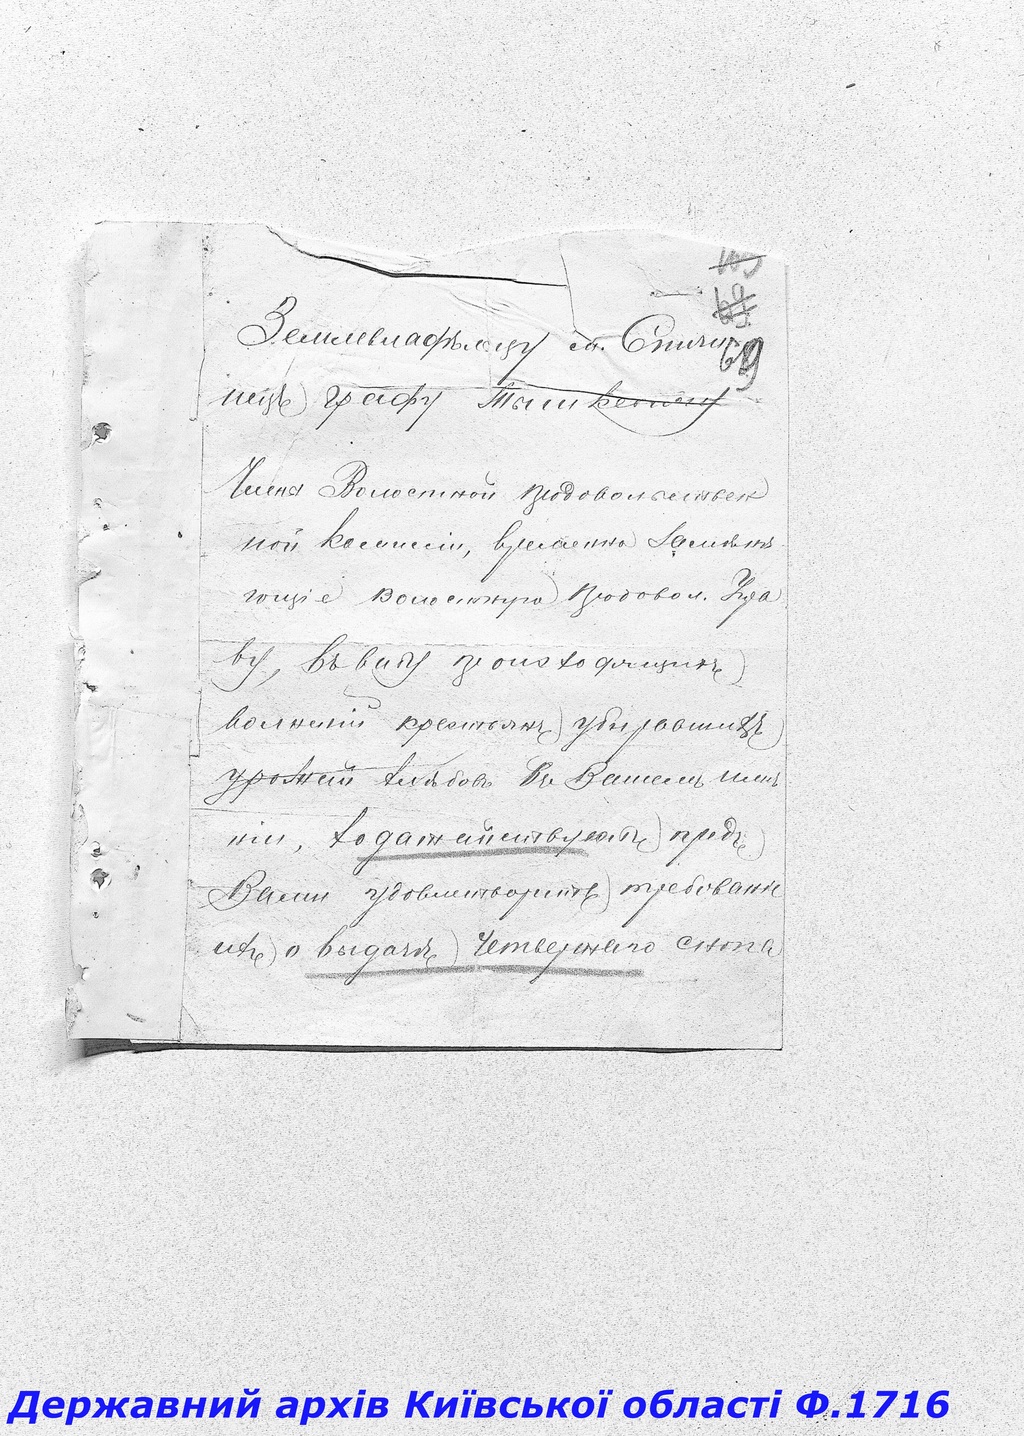 69
Землевладѣльцу с. Спичи-
нецъ графу Тышкевичу
Члены Волостной продовольствен
ной комиссіи, временно замѣня
ющіе волостную продовол. Упра
ву, въ виду происходящихъ
волненій крестьянъ убиравшихъ
урожай хлѣбовъ въ Вашемъ имѣ
ніи, ходатайствуютъ предъ
Вами удовлетворить требованія
ихъ о выдачѣ четвертаго снопа
Державний архів Київської області Ф.1716